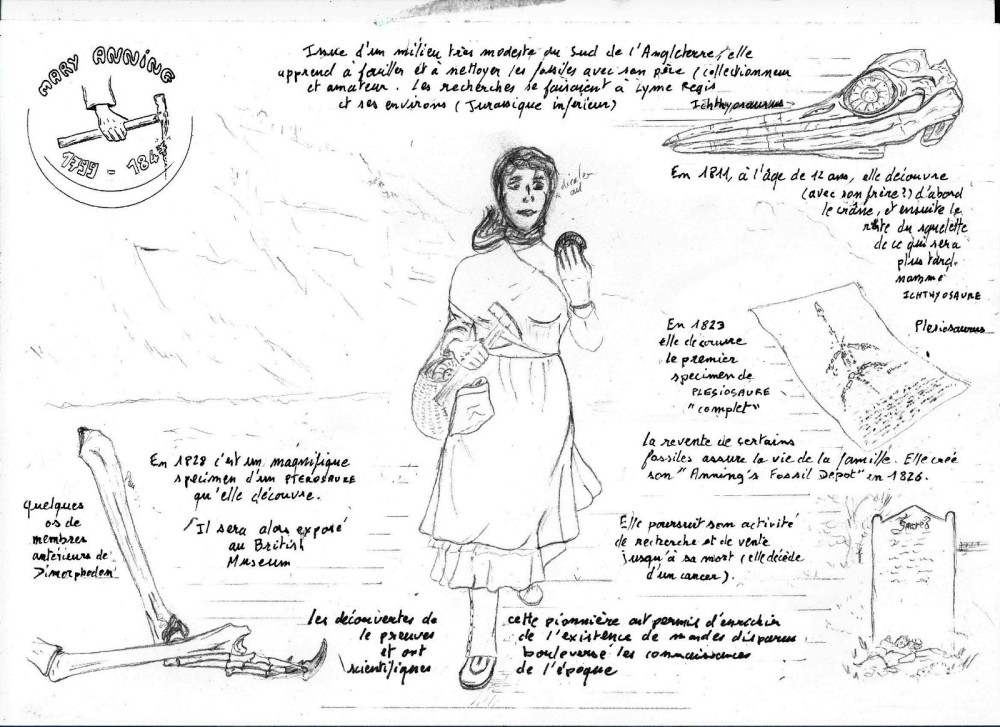 MARY ANNING
1799 - 1847
Issue d'un milieu très modeste du Sud de l'Angleterre, elle
apprend à fouiller et à nettoyer les fossiles avec son père (collectionneur
et amateur. Les recherches se faisaient à Lyme Regis
et ses environs (Jurassique inférieur)
Ichthyosaurus
En 1811, à l'âge de 12 ans, elle découvre
(avec son frère?) d'abord
le crâne, et ensuite le
reste du squelette
de ce qui sera
plus tard
nommé
ICHTHYOSAURE
Plesiosaurus
En 1823
elle découvre
le premier
specimen de
PLESIOSAURE
"complet"
La revente de certains
fossiles assure la vie de la famille. Elle crée
son "Anning's Fossil Depot" en 1826.
En 1828 c'est un magnifique
specimen d'un PTEROSAURE
qu'elle découvre.
Il sera alors exposé
au British
Museum
Quelques
os de
membres
antérieurs de
Dimorphodon
Elle poursuit son activité
de recherche et de vente
jusqu'à sa mort (elle décède
d'un cancer).
Sacred
Les découvertes de cette pionnière ont permis d'enrichir
le preuves de l'existence de mondes disparus
et ont bouleversé les connaissances
scientifiques de l'époque